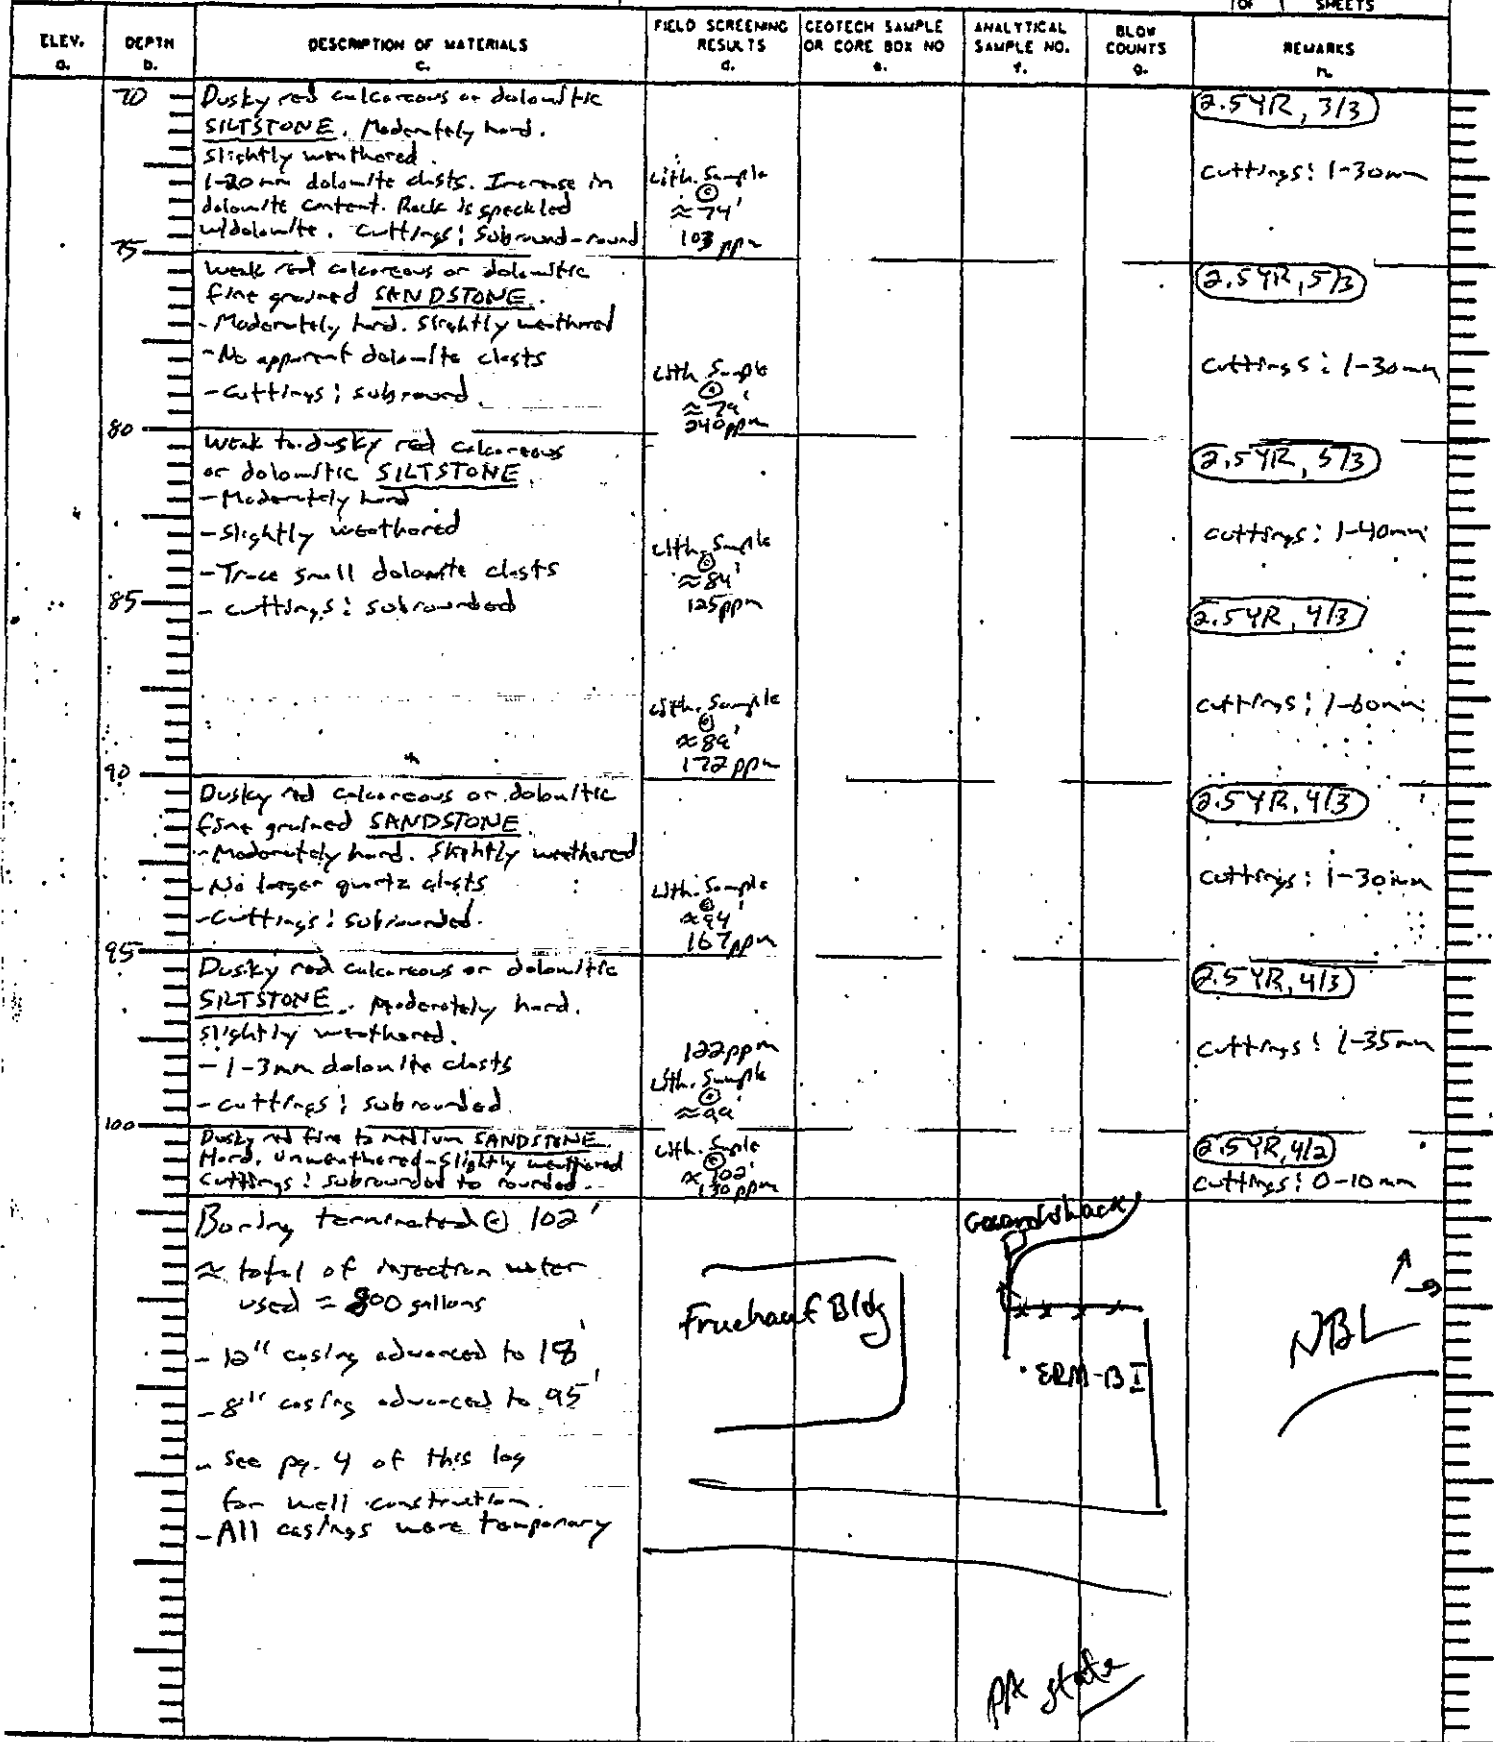 OF SHEETS
ELEV. a.
DEPTH b.
DESCRIPTION OF MATERIALS c.
FIELD SCREENING RESULTS d.
GEOTECH SAMPLE OR CORE BOX NO e.
ANALYTICAL SAMPLE NO. f.
BLOW COUNTS g.
REMARKS h.
70
Dusky red calcareous or dolomitic
SILTSTONE. Moderately hard.
Slightly weathered.
1-20 mm dolomite clasts. Increase in
dolomite content. Rock is speckled
w/dolomite. Cuttings: Subround-round
Lith. Sample
@
≈ 74'
103 ppm
2.5YR, 3/3
cuttings: 1-30mm
75
Weak red calcareous or dolomitic
fine grained SANDSTONE.
- Moderately hard. Slightly weathered
- No apparent dolomite clasts
- Cuttings: subround.
Lith. Sample
@
≈ 79'
240ppm
2.5YR, 5/3
cuttings: 1-30mm
80
Weak to dusky red calcareous
or dolomitic SILTSTONE.
- Moderately hard
- Slightly weathered
- Trace small dolomite clasts
- cuttings: subrounded
Lith. Sample
@
≈ 84'
125ppm
2.5YR, 5/3
cuttings: 1-40mm
85
2.5YR, 4/3
Lith. Sample
@
≈ 89'
172 ppm
cuttings: 1-60mm
90
Dusky red calcareous or dolomitic
fine grained SANDSTONE.
- Moderately hard. Slightly weathered
- No larger quartz clasts
- Cuttings: subrounded.
Lith. Sample
@
≈ 94'
167ppm
2.5YR, 4/3
cuttings: 1-30mm
95
Dusky red calcareous or dolomitic
SILTSTONE. Moderately hard.
Slightly weathered.
- 1-3mm dolomite clasts
- cuttings: subrounded.
122ppm
Lith. Sample
@
≈ 99'
2.5YR, 4/3
cuttings: 1-35mm
100
Dusky red fine to medium SANDSTONE.
Hard. Unweathered-Slightly weathered
Cuttings: subrounded to rounded.
Lith. Sample
@
≈ 102'
130ppm
2.5YR, 4/2
cuttings: 0-10mm
Boring terminated @ 102'
≈ total of injection water
used = 800 gallons
- 12" casing advanced to 18'
- 8" casing advanced to 95'
- See pg. 4 of this log
for well construction.
- All casings were temporary
Guardshack
Fruehauf Bldg
ERM-BI
NBL